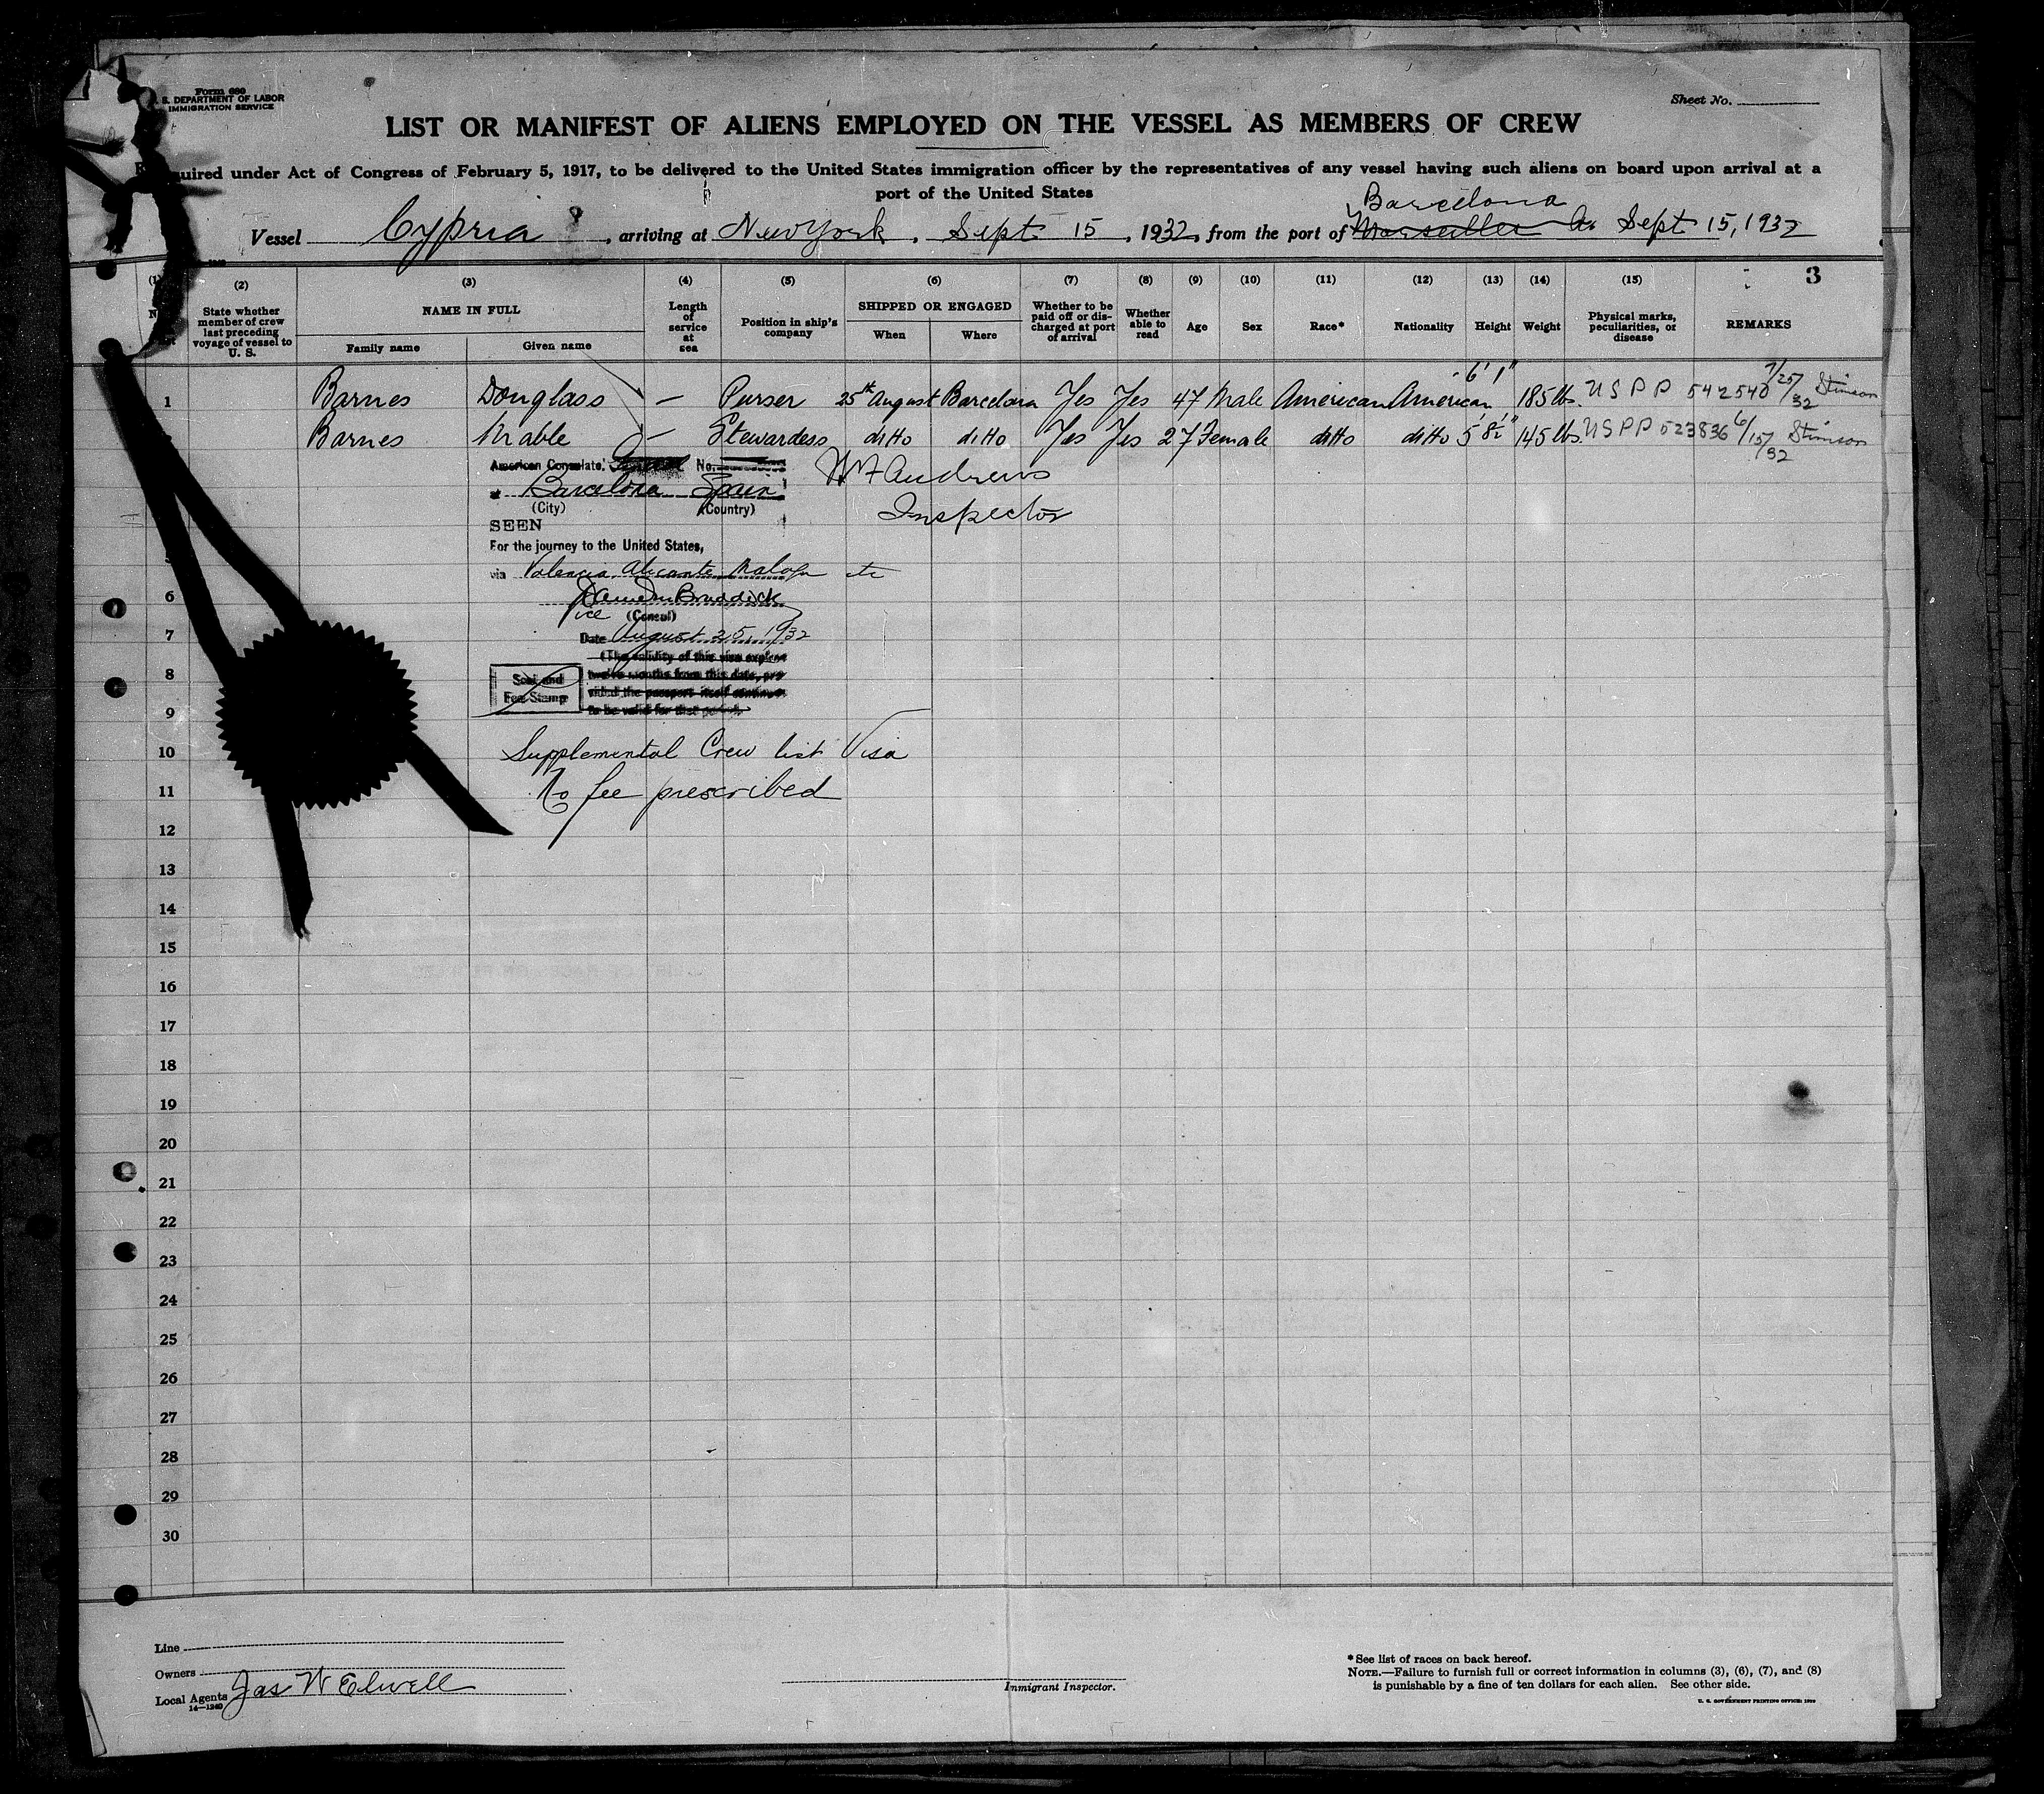 Form 680
S. DEPARTMENT OF LABOR
IMMIGRATION SERVICE
Sheet No.
LIST OR MANIFEST OF ALIENS EMPLOYED ON THE VESSEL AS MEMBERS OF CREW
quired under Act of Congress of February 5, 1917, to be delivered to the United States immigration officer by the representatives of any vessel having such aliens on board upon arrival at a
port of the United States
Barcelona
Vessel Cypria, arriving at New York, Sept 15, 1932, from the port of Marseilles Sept 15, 1932
3
(2) (3) (4) (5) (6) (7) (8) (9) (10) (11) (12) (13) (14) (15)
State whether member of crew last preceding voyage of vessel to U. S.
NAME IN FULL
Family name Given name
Length of service at sea
Position in ship's company
SHIPPED OR ENGAGED
When Where
Whether to be paid off or discharged at port of arrival
Whether able to read
Age Sex Race* Nationality Height Weight
Physical marks, peculiarities, or disease
REMARKS
1 Barnes Douglass — Purser 25th August Barcelona Yes Yes 47 Male American American 6' 1" 185 lbs. U S P P 542540 7/25/32 Stimson
Barnes Mable — Stewardess ditto ditto Yes Yes 27 Female ditto ditto 5' 8½" 145 lbs U S P P 523836 6/15/32 Stimson
American Consulate, No.
W Andrews
at Barcelona Spain
(City) (Country)
Inspector
SEEN
For the journey to the United States,
via Valencia, Alicante, Malaga etc
Braddick
Vice (Consul)
Date August 25, 1932
(The validity of this visa expires
twelve months from this date, pro-
vided the passport itself continues
to be valid for that period.
Seal and
Fee Stamp
Supplemental Crew list Visa
No fee prescribed
6
7
8
9
10
11
12
13
14
15
16
17
18
19
20
21
22
23
24
25
26
27
28
29
30
Line
Owners
Local Agents Jas W Elwell
14—1240
Immigrant Inspector.
* See list of races on back hereof.
NOTE.—Failure to furnish full or correct information in columns (3), (6), (7), and (8)
is punishable by a fine of ten dollars for each alien. See other side.
U. S. GOVERNMENT PRINTING OFFICE: